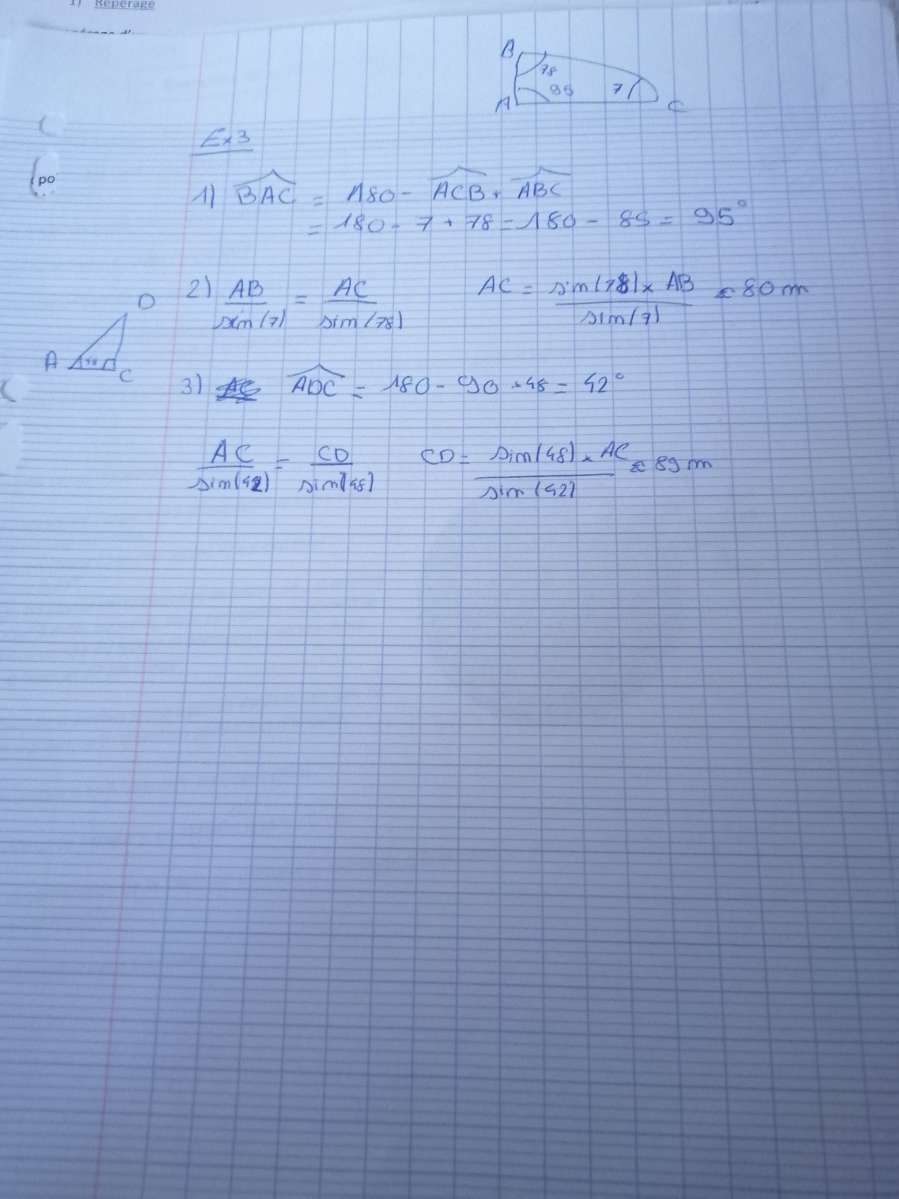 1) Repérage
B
78
95
7
A
C
Ex 3
po
1) BAC = 180 - ACB + ABC
= 180 - 7 + 78 = 180 - 85 = 95°
2) AB / sin(7) = AC / sin(78)   AC = sin(78) × AB / sin(7) ≈ 80 m
D
A
48
C
3) ADC = 180 - 90 + 48 = 42°
AC / sin(42) = CD / sin(48)   CD = sin(48) × AC / sin(42) ≈ 89 m